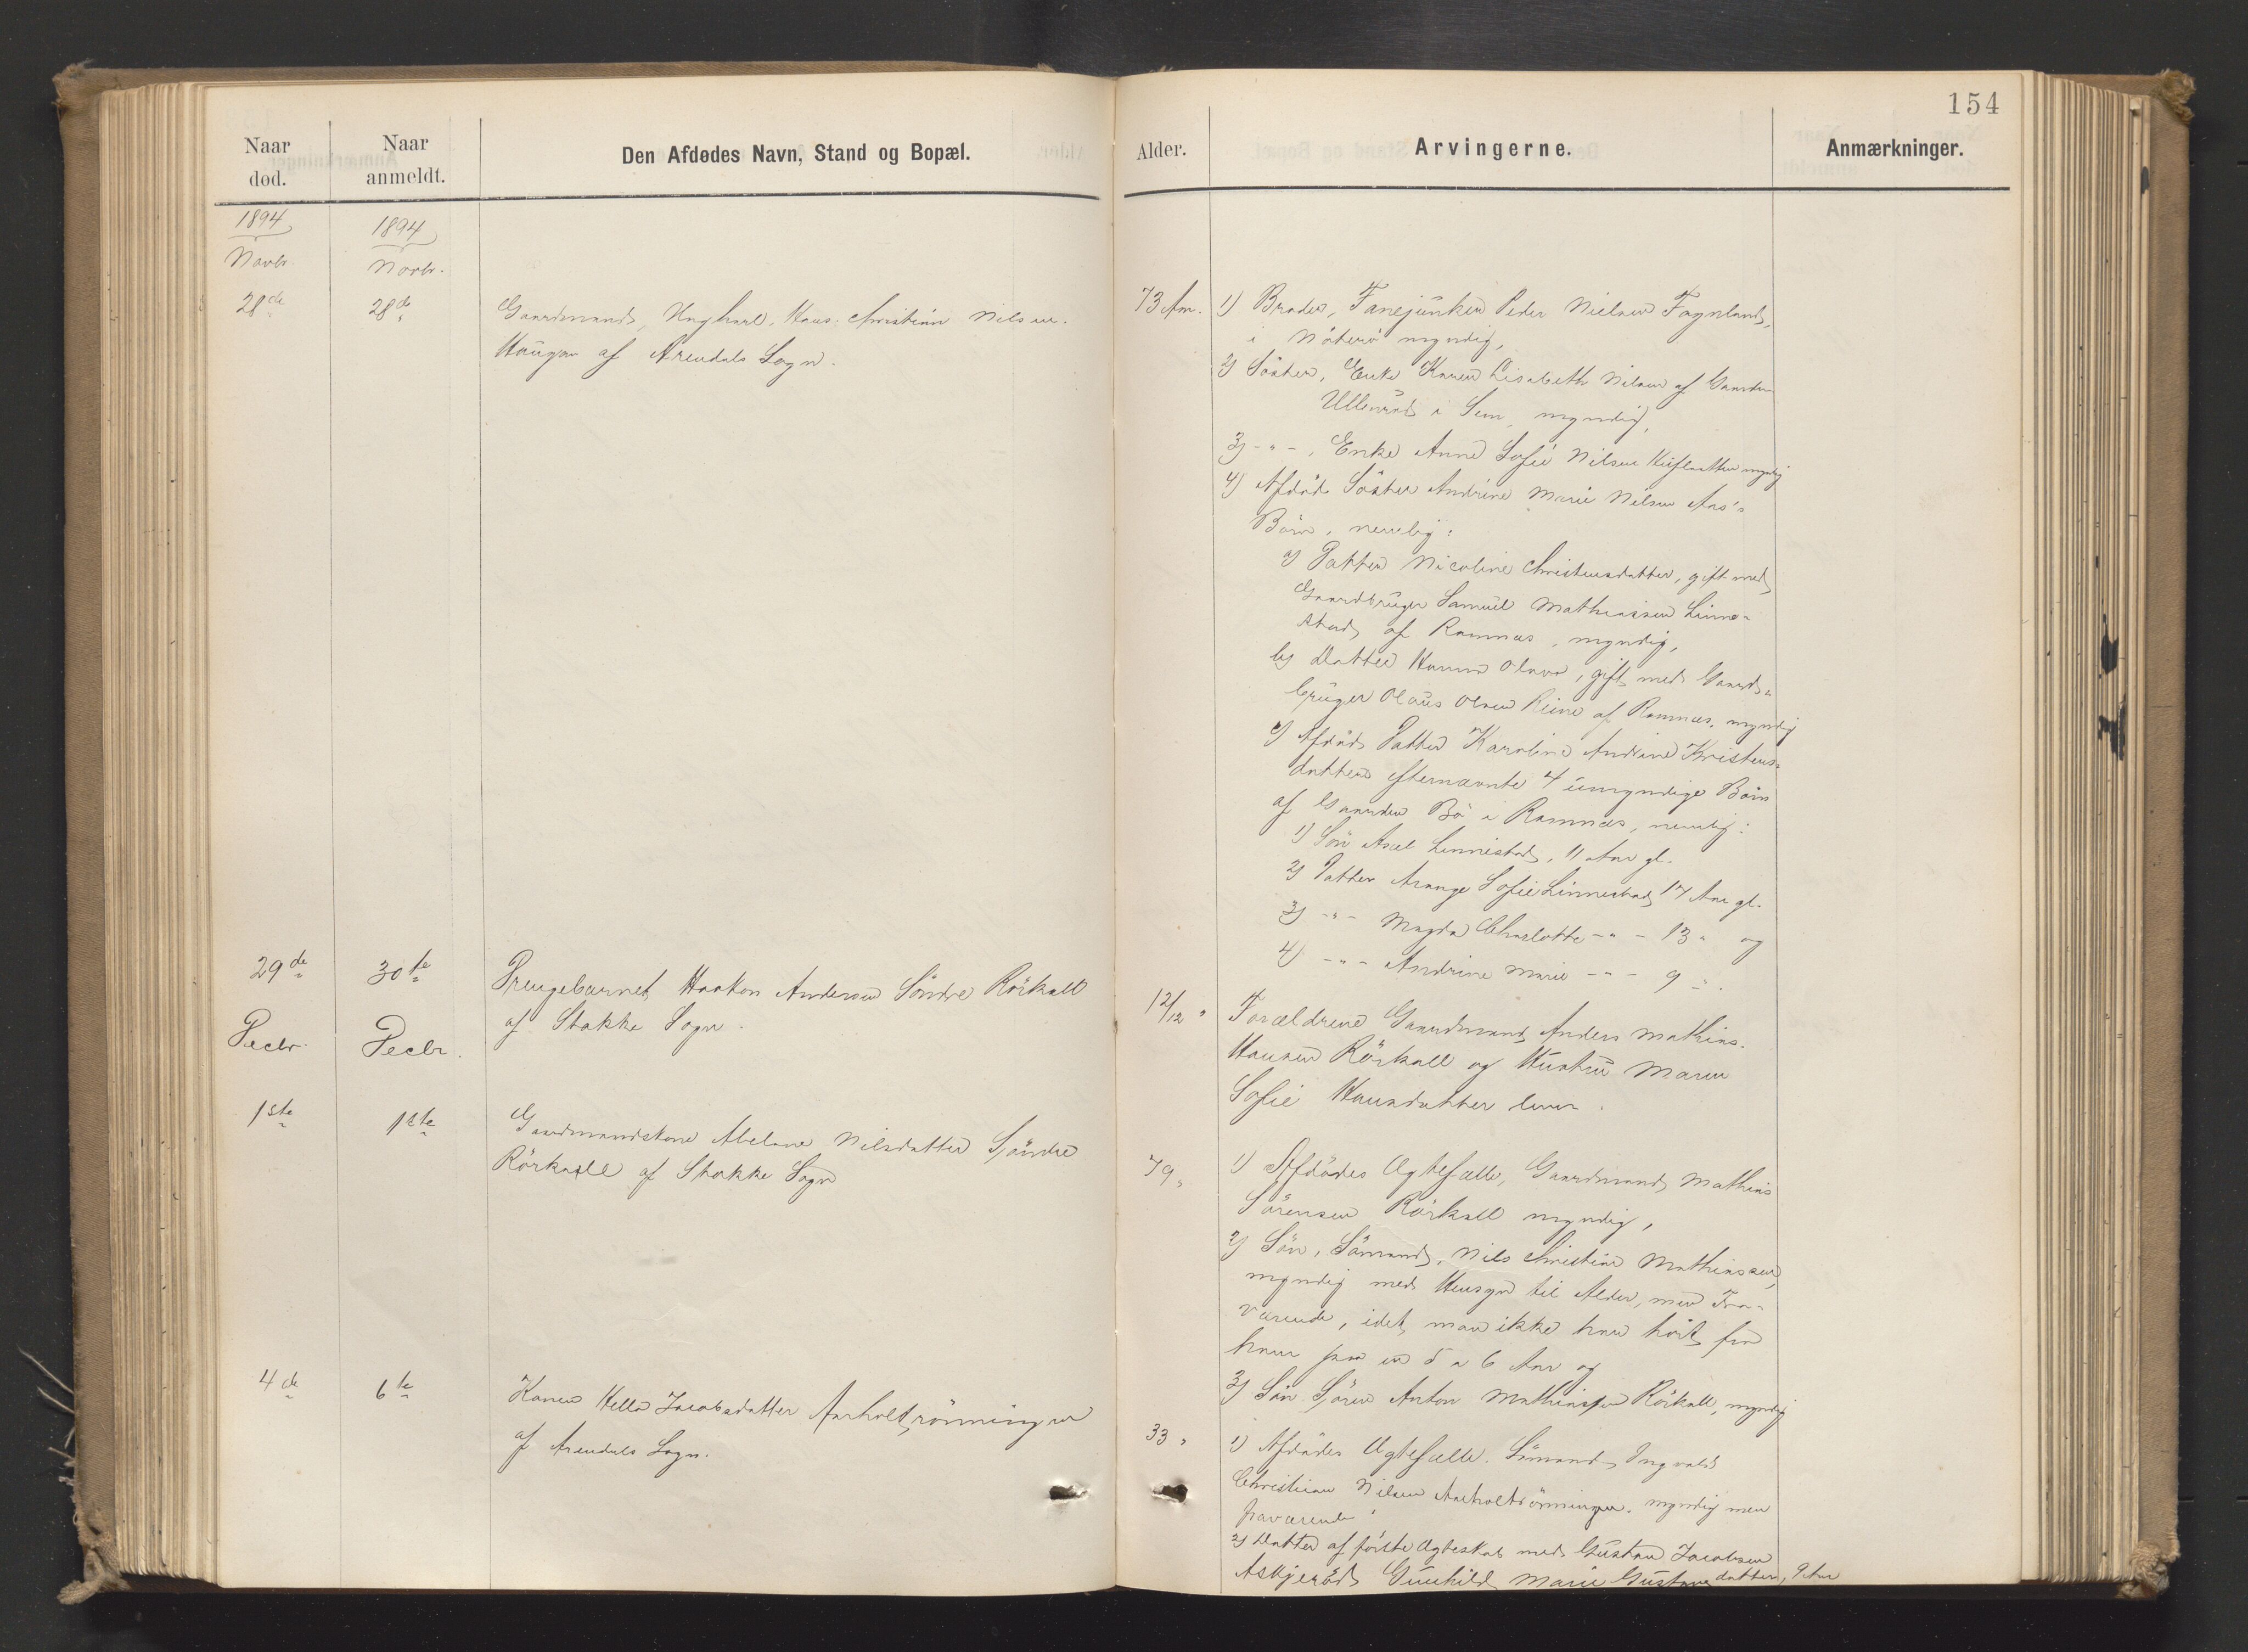 154
Naar død.
Naar anmeldt.
Den Afdødes Navn, Stand og Bopæl.
Alder.
Arvingerne.
Anmærkninger.
1894
1894
Novbr.
Novbr.
28de
28de
Gaardmand, Ungkarl, Hans Christian Nilsen
Haugan af Arendals Sogn.
73 Aar.
1) Broder, Fanejunker Peder Nielsen Fognland,
i Nöterö myndig,
2) Söster, Enke Karen Lisabeth Nilsen af Gaarden
Ullerød i Sem, myndig,
3) -"-, Enke Anne Sofie Nilsen myndig
4) Afdöd Söster Andrine Marie Nilsen Aas's
Börn, nemlig:
a) Datter Nicoline Christensdatter, gift med
Gaardbruger Samuel Mathiassen Linne-
stad af Ramnæs, myndig,
b) Datter Hanna Olava, gift med Gaard-
bruger Olaus Olsen Reine af Ramnæs, myndig
c) Afdöd Datter Karoline Andrine Kristens-
datters efternævnte 4 umyndige Börn
af Gaarden Bö i Ramnæs, nemlig:
1) Sön Axel Linnestad, 11 Aar gl.
2) Datter Aranga Sofie Linnestad 17 Aar gl.
3) -"- Magda Charlotte -"- 13 " og
4) -"- Andrine Marie -"- 9 ".
29de
30te
Drengebarnet Haakon Andersen Söndre Rörkoll
af Stokke Sogn.
12/12 "
Forældrene Gaardmand Anders Mathias
Hansen Rörkoll og Hustru Maren
Sofie Hansdatter lever.
Decbr.
Decbr.
1ste
1ste
Gaardmandskone Abelone Nilsdatter Söndre
Rörkoll af Stokke Sogn
79 "
1) Afdödes Ægtefælle, Gaardmand Mathias
Sörensen Rörkoll myndig,
2) Sön, Sömand, Nils Christian Mathiassen,
myndig med Hensyn til Alder, men Fra-
værende, idet man ikke har hört fra
ham paa en 5 a 6 Aar og
3) Sön Sören Anton Mathiassen Rörkoll, myndig
4de
6te
Konen Hella Jacobsdatter Aarholtrönningen
af Arendals Sogn.
33 "
1) Afdödes Ægtefælle, Sömand Ingvald
Christian Nilsen Aarholtrönningen, myndig men
fraværende
2) Datter af förste Ægteskab med Gustav Jacobsen
Askjeröd, Gunhild Marie Gustavsdatter, 9 Aar